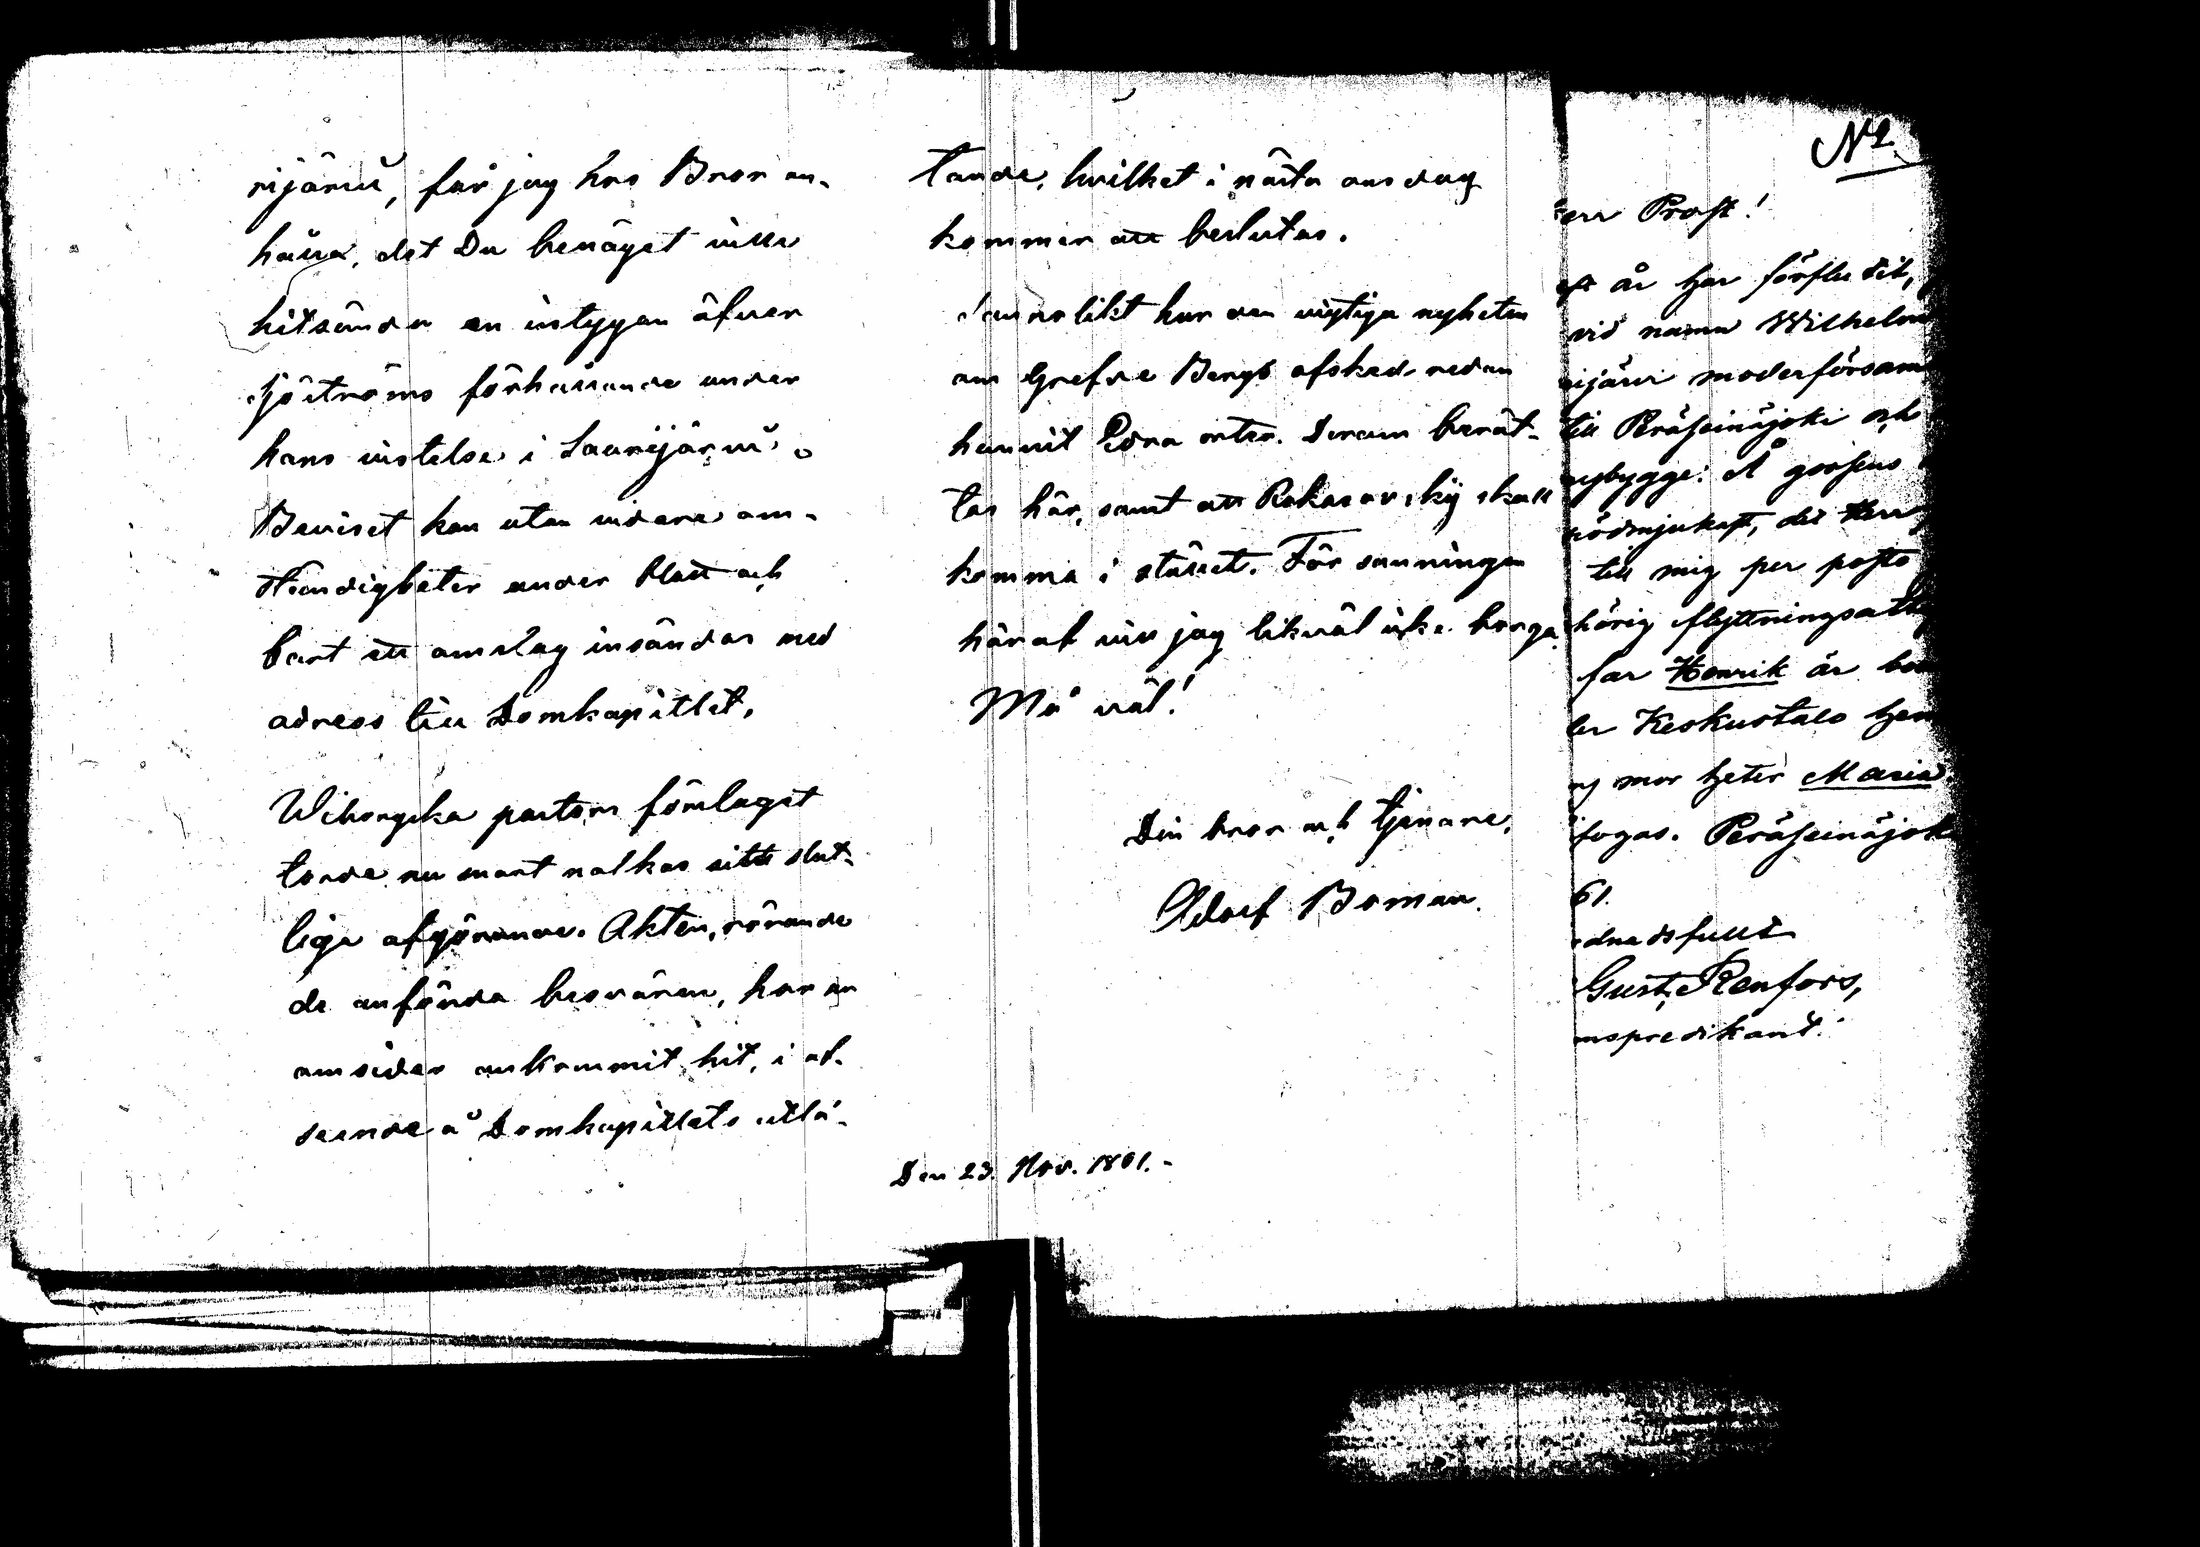 rijärvi, får jag hos Bror an-
hålla, det Du benäget ville
hitsända en intygan öfver
Sjöströms förhållande under
hans vistelse i Saarijärvi.
Beviset kan utan vidare om-
ständigheter under blått och
bart ett omslag insändas med
adress till Domkapitlet.
Wiborgska pastors förslaget
torde nu snart nalkas sitt slut-
liga afgörande. Akten, rörande
de anförda besvären, har nu
omsider ankommit hit, i af-
seende å Domkapitlets utlå-
tande, hvilket i nästa onsdag
kommer att beslutas.
Sannolikt har den vigtiga nyheten
om Grefve Bergs afsked redan
hunnit Edra orter. Derom berät-
tas här, samt att Rokasovskij skall
komma i stället. För sanningen
häraf vill jag likväl icke borga.
Må väl!
Din bror och tjenare,
Adolf Boman.
Den 23. Nov. 1861.-
N2.
err Prost!
år har förflutit,
vid namn Wilhelm
rijärvi moderförsam
till Peräseinäjoki och
nybygge. Å
ödmjukast, det Herr
till mig per posto
hörig flyttningsatt
far Henrik är
Keskustalo hem
mor heter Maria.
fogas. Peräseinäjok
61.
dnadsfullt
Gust. Renfors,
nspredikant.